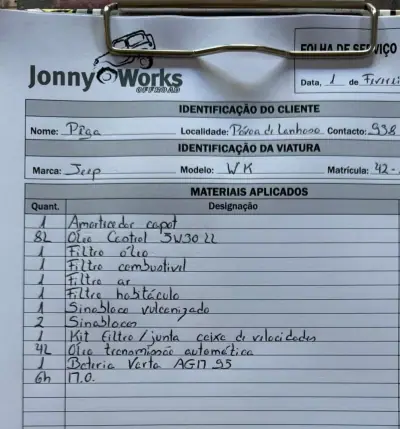 FOLHA DE SERVIÇO
Jonny Works
OFFROAD
Data, 1 de
IDENTIFICAÇÃO DO CLIENTE
Nome: Piga Localidade: Póvoa de Lanhoso Contacto: 938
IDENTIFICAÇÃO DA VIATURA
Marca: Jeep Modelo: WK Matrícula: 42-
MATERIAIS APLICADOS
Quant. Designação
1 Amortecedor capot
8L Óleo Castrol 5W30 LL
1 Filtro óleo
1 Filtro combustivel
1 Filtro ar
1 Filtro habitáculo
1 Sinobloco vulcanizado
2 Sinoblocos
1 Kit filtro / junta caixa de velocidades
4L Óleo transmissão automática
1 Bateria Varta AGM 95
6h M.O.